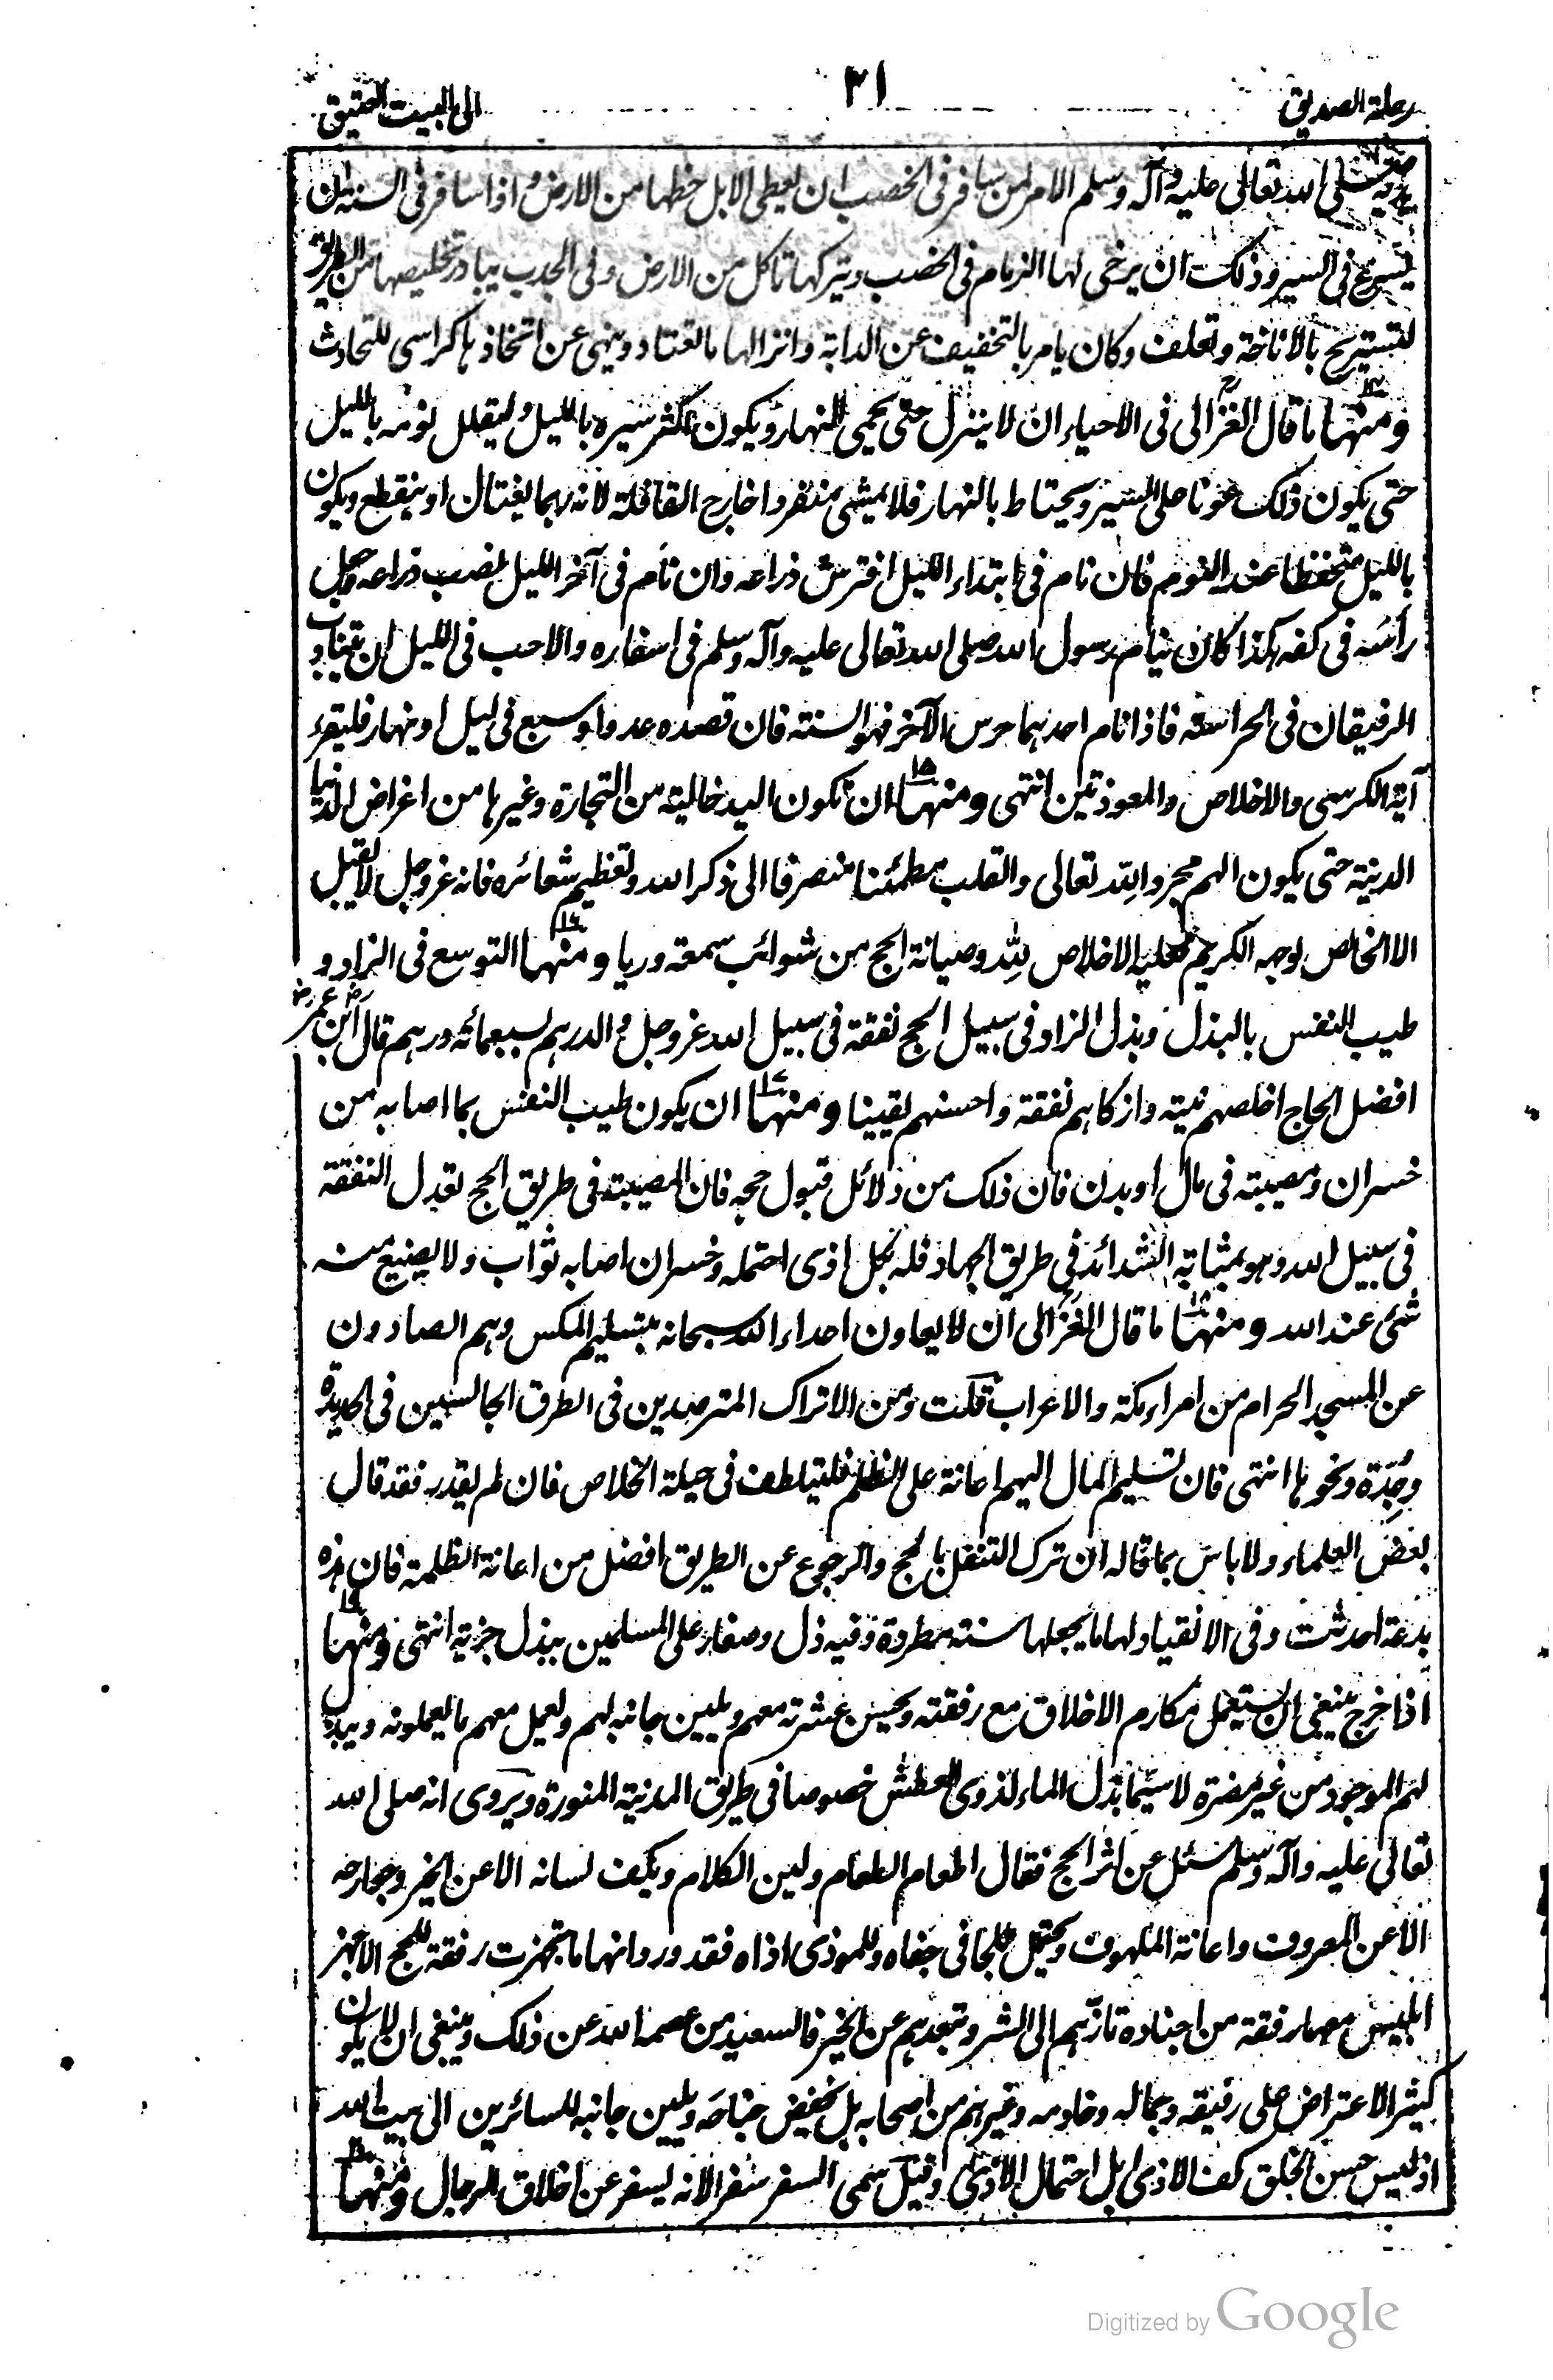 رحلة الصديق
٣١
الى البيت العتيق
صلى الله تعالى عليه وآله وسلم الامر لمن سافر فى الخصب ان يعطى الابل حظها من الارض و اذا سافر فى السنة ان
يسرع فى السير وذلك ان يرخى لها الزمام فى الخصب ويتركها تاكل من الارض وفى الجدب يبادر تخليصها من الطريق
لتستريح بالاناخة وتعلف وكان يامر بالتخفيف عن الدابة وانزالها بالمعتاد وينهى عن اتخاذها كراسى للتحادث
ومنها ١٤ ما قال الغزالى فى الاحياء ان لا ينزل حتى يحمى النهار ويكون اكثر سيره بالليل وليقلل نومه بالليل
حتى يكون ذلك عونا على السير ويحتاط بالنهار فلا يمشى منفردا خارج القافلة لانه ربما يغتال او ينقطع ويكون
بالليل متحفظا عند النوم فان نام فى ابتداء الليل افترش ذراعه وان نام فى آخر الليل نصب ذراعه وجعل
رأسه فى كفه هكذا كان ينام رسول الله صلى الله تعالى عليه وآله وسلم فى اسفاره والاحب فى الليل ان يتناوب
الرفيقان فى الحراسة فاذا نام احدهما حرس الآخر فهو السنة فان قصده عدو او سبع فى ليل او نهار فليقرء
آية الكرسى والاخلاص والمعوذتين انتهى ومنها ١٥ ان تكون اليد خالية من التجارة وغيرها من اغراض الدنيا
الدنية حتى يكون الهم مجردا لله تعالى والقلب مطمئنا منصرفا الى ذكر الله وتعظيم شعائره فانه عز وجل لا يقبل
الا الخالص لوجهه الكريم فعليه الاخلاص لله وصيانة الحج من شوائب سمعة وريا ومنها ١٦ التوسع فى الزاد و
طيب النفس بالبذل وبذل الزاد فى سبيل الحج نفقة فى سبيل الله عز وجل والدرهم بسبعمائة درهم قال ابن عمر رض
افضل الحاج اخلصهم نية وازكاهم نفقة واحسنهم يقينا ومنها ١٧ ان يكون طيب النفس بما اصابه من
خسران ومصيبة فى مال او بدن فان ذلك من دلائل قبول حجه فان المصيبة فى طريق الحج تعدل النفقة
فى سبيل الله وهو بمثابة الشدائد فى طريق الجهاد فله بكل اذى احتمله وخسران اصابه ثواب ولا يضيع منه
شئ عند الله ومنها ١٨ ما قال الغزالى ان لا يعاون اعداء الله سبحانه بتسليم المكس وهم الصادون
عن المسجد الحرام من امراء مكة والاعراب قلت ومن الاتراك المترصدين فى الطرق الجالسين فى الحديدة
وجدة ونحوها انتهى فان تسليم المال اليهم اعانة على الظلم فليتلطف فى حيلة الخلاص فان لم يقدر فقد قال
بعض العلماء ولا باس بما قاله ان ترك التنفل بالحج والرجوع عن الطريق افضل من اعانة الظلمة فان هذه
بدعة احدثت وفى الانقياد لها ما يجعلها سنة مطردة وفيه ذل وصغار على المسلمين ببذل جزية انتهى ومنها ١٩
اذا خرج ينبغى ان يستعمل مكارم الاخلاق مع رفقته ويحسن عشرته معهم ويلين جانبه لهم ويعمل معهم ما يعملونه ويبذل
لهم الموجود من غير مضرة لا سيما بذل الماء لذوى العطش خصوصا فى طريق المدينة المنورة ويروى انه صلى الله
تعالى عليه وآله وسلم سئل عن اثر الحج فقال اطعام الطعام ولين الكلام ويكف لسانه الا عن الخير وجوارحه
الا عن المعروف واعانة الملهوف ويحتمل للجافى جفاه وللموذى اذاه فقد ورد انها ما تجهزت رفقة للحج الا جهز
ابليس معها رفقة من اجناده تازهم الى الشر وتبعدهم عن الخير فالسعيد من عصمه الله عن ذلك وينبغى ان لا يكون
كثير الاعتراض على رفيقه وجماله وخادمه وغيرهم من اصحابه بل يخفض جناحه ويلين جانبه للسائرين الى بيت الله
اذ ليس حسن الخلق كف الاذى بل احتمال الاذى وقيل سمى السفر سفرا لانه يسفر عن اخلاق الرجال ومنها ٢٠
Digitized by Google